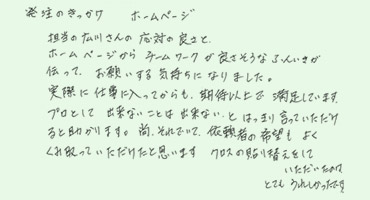 発注のきっかけ　ホームページ
担当の広川さんの応対の良さと、
ホームページから チームワークが良さそうなふんいきが
伝って、お願いする気持ちになりました。
実際に仕事に入ってからも、期待以上で満足しています。
プロとして 出来ないことは 出来ない と はっきり言っていただけ
ると助かります。尚、それでいて、依頼者の希望も よく
くみ取っていただけたと思います クロスの貼り替えをして
いただいたのは
とても うれしかったです。